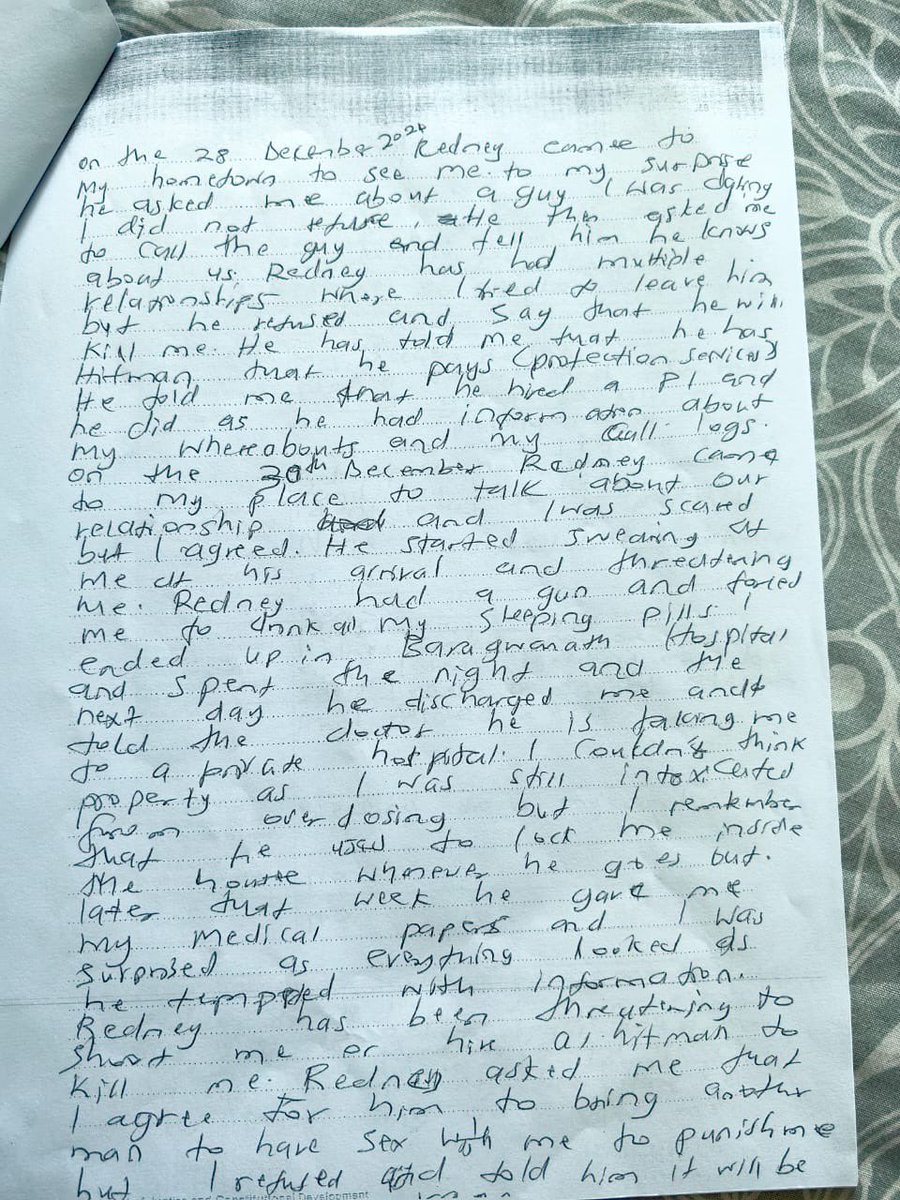 on the 28 December 2024 Redney came to
My hometown to see me. to my surprise
he asked me about a guy I was dating
I did not refuse, He then asked me
to call the guy and tell him he knows
about us. Redney has had multiple
relationships where I tried to leave him
but he refused and say that he will
kill me. He has told me that he has
Hitman that he pays (protection services)
He told me that he hired a PI and
he did as he had information about
my whereabouts and my Call logs.
on the 30th December Redney came
to my place to talk about our
relationship and I was scared
but I agreed. He started swearing at
me at his arrival and threatening
me. Redney had a gun and forced
me to drink all my sleeping pills. I
ended up in Baragwanath Hospital
and spent the night and the
next day he discharged me and
told the doctor he is taking me
to a private hospital. I couldn't think
property as I was still intoxicated
from overdosing but I remember
that he used to lock me inside
the house whenever he goes but.
later that week he gave me
my medical papers and I was
surprised as everything looked as
he with information.
Redney has been threatening to
shoot me or hire a hitman to
kill me. Redney asked me that
I agree for him to bring another
man to have sex with me to punish me
but I refused and told him it will be
and Constitutional Development